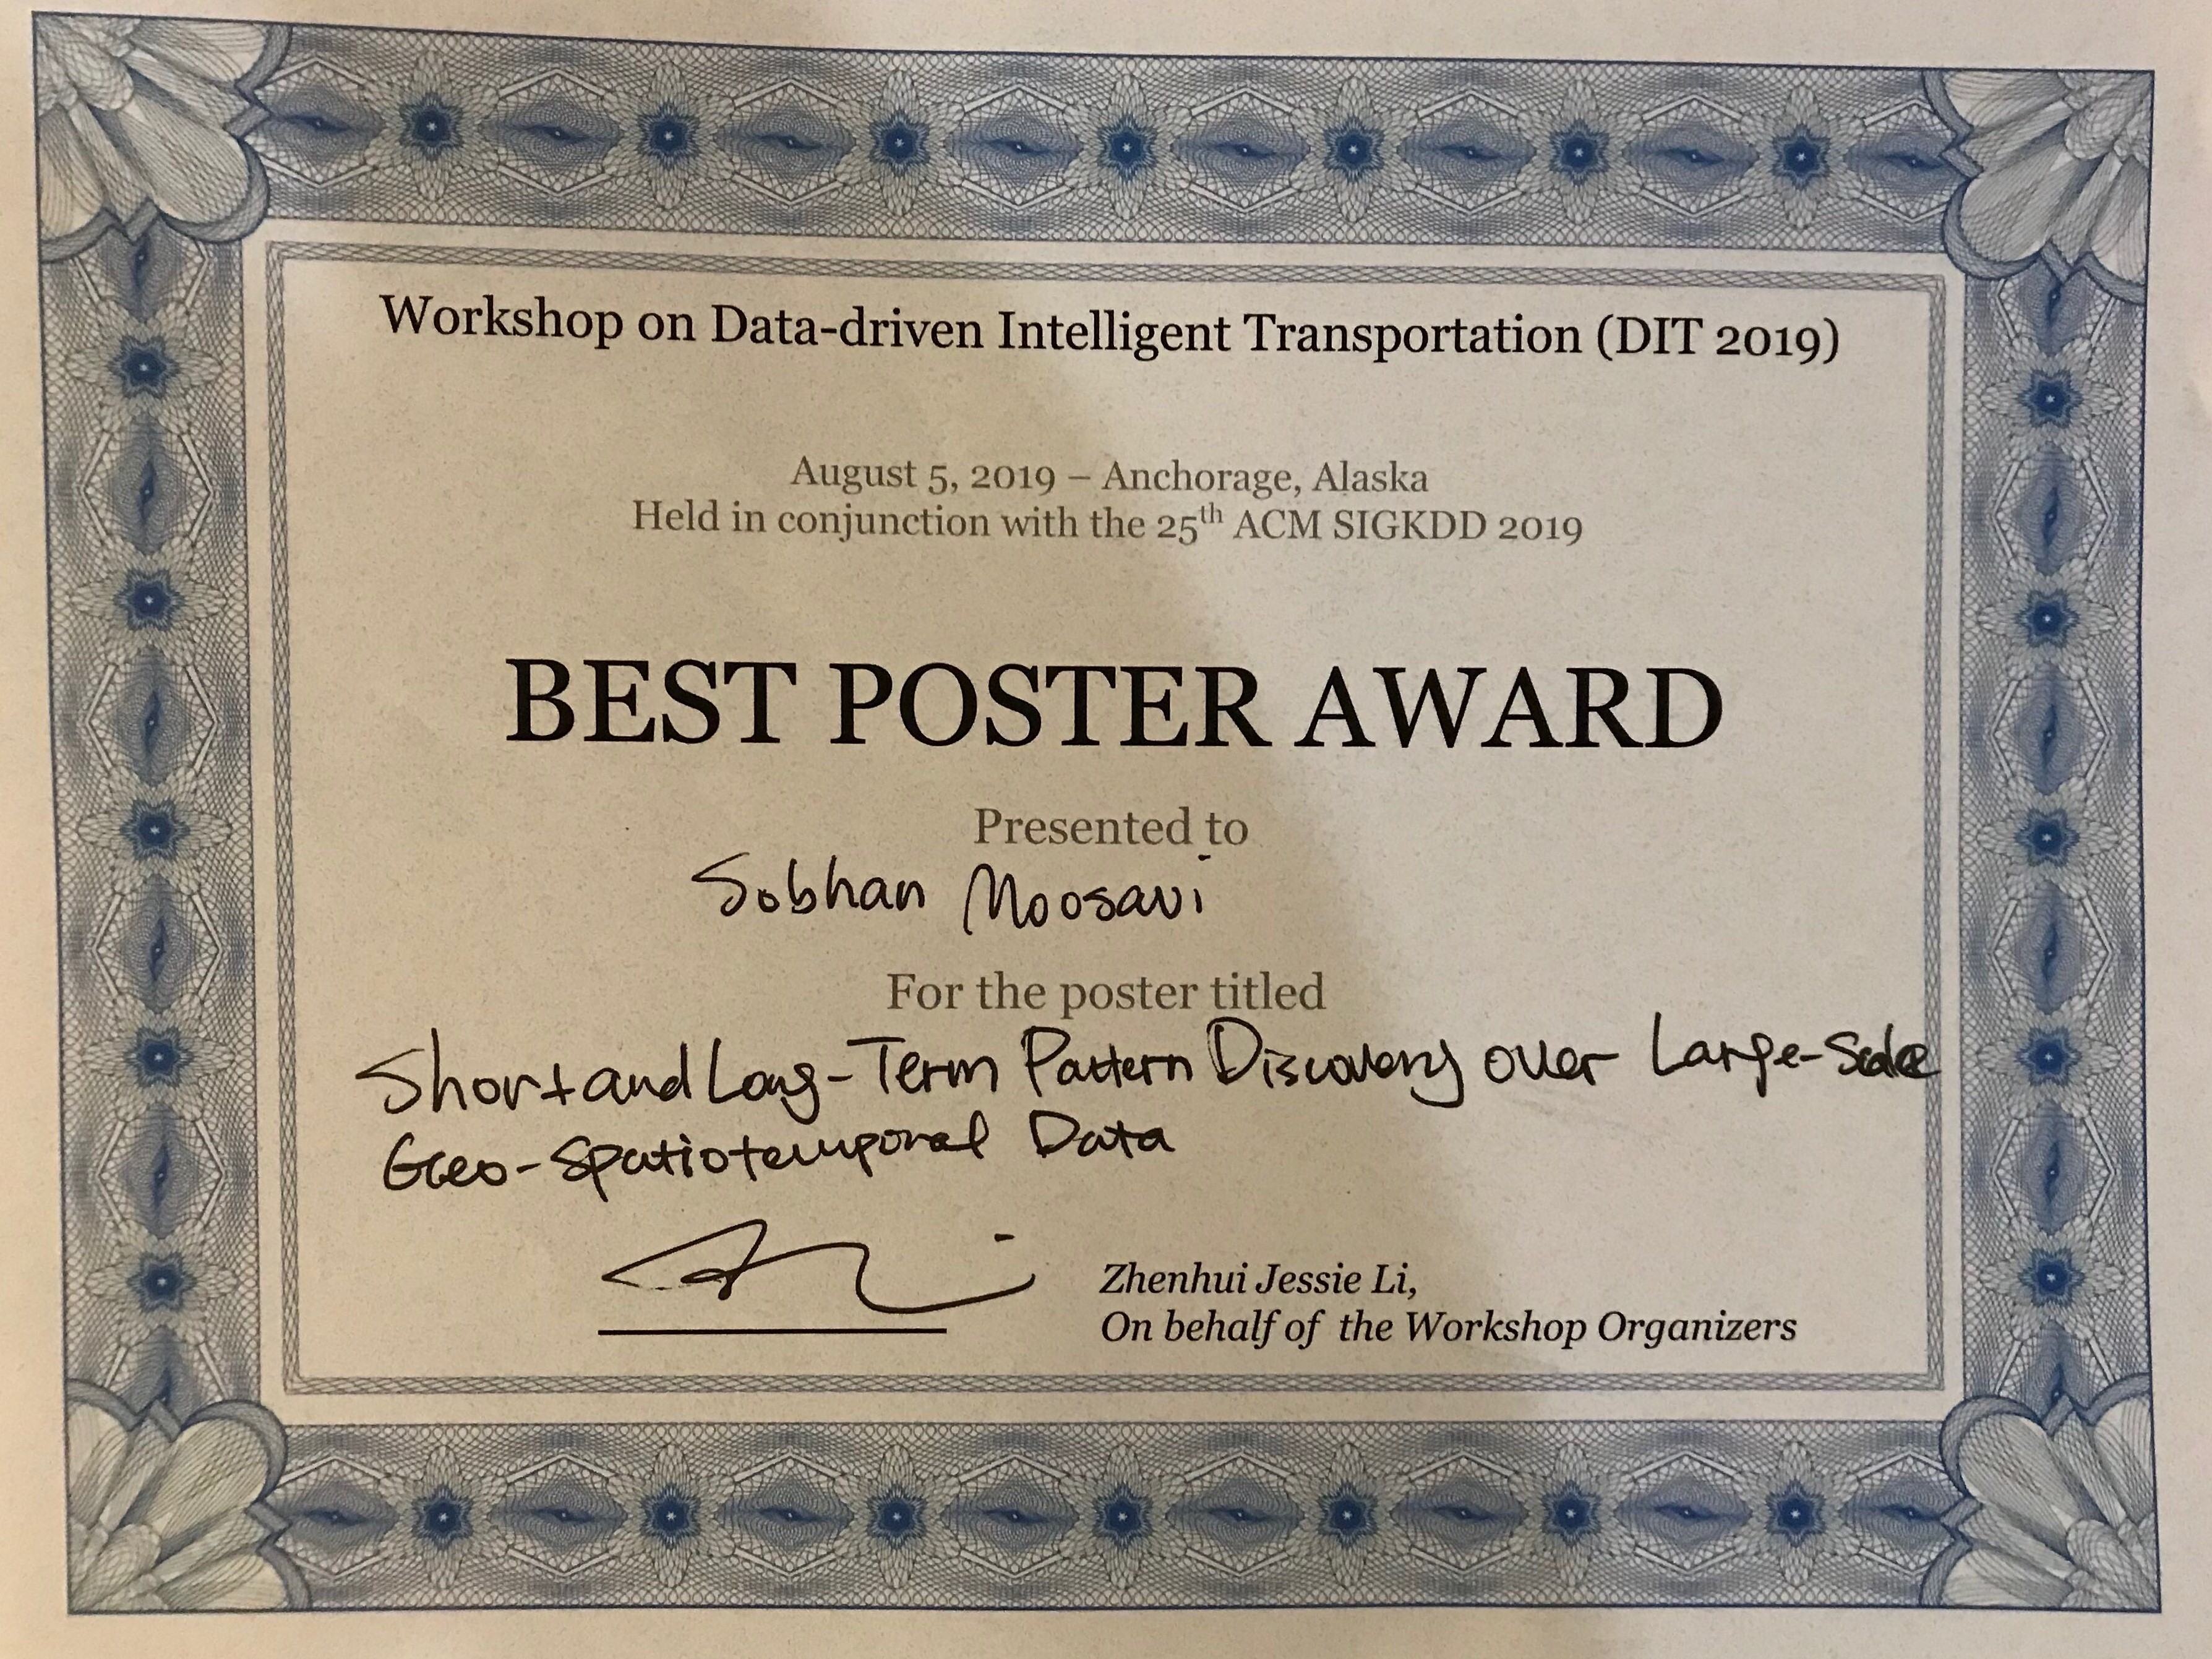 Workshop on Data-driven Intelligent Transportation (DIT 2019)
August 5, 2019 – Anchorage, Alaska
Held in conjunction with the 25th ACM SIGKDD 2019
BEST POSTER AWARD
Presented to
Sobhan Moosavi
For the poster titled
Short and Long-Term Pattern Discovery over Large-Scale
Geo-Spatiotemporal Data
Zhenhui Jessie Li,
On behalf of the Workshop Organizers